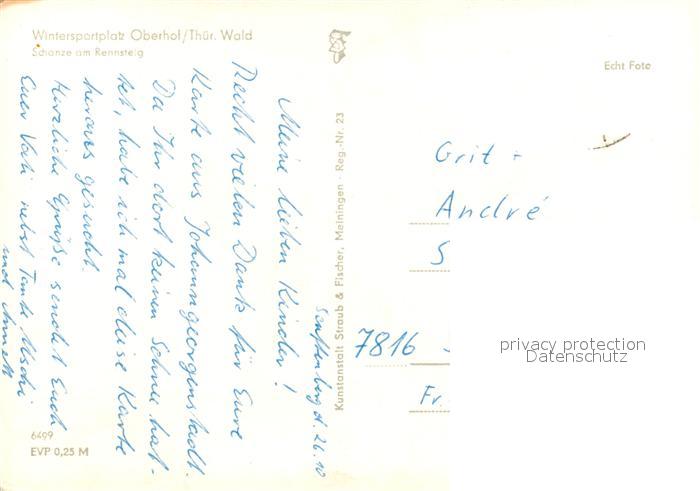 Wintersportplatz Oberhof/Thür. Wald
Schanze am Rennsteig
Echt Foto
Senftenberg, d. 26.10
Meine lieben Kinder!
Recht vielen Dank für Eure
Karte aus Johanngeorgenstadt.
Da Ihr dort keinen Schnee hat-
tet, habe ich mal diese Karte
heraus gesucht.
Herzliche Grüße sendet Euch
Euer Vati nebst Tante Uschi
und Annett
Kunstanstalt Straub & Fischer, Meiningen · Reg.-Nr. 23
Grit +
André
S
7816
Fr.
privacy protection
Datenschutz
6499
EVP 0,25 M